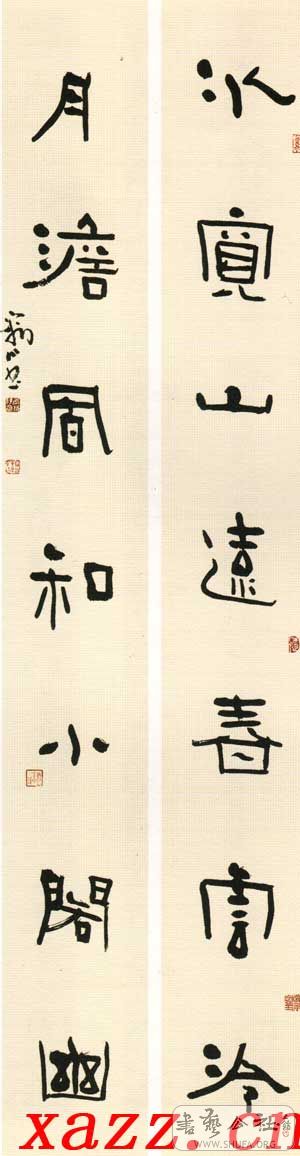 水寬山遠春雲冷
月澹風和小閣幽
書藝公社
WWW.SHUFA.ORG